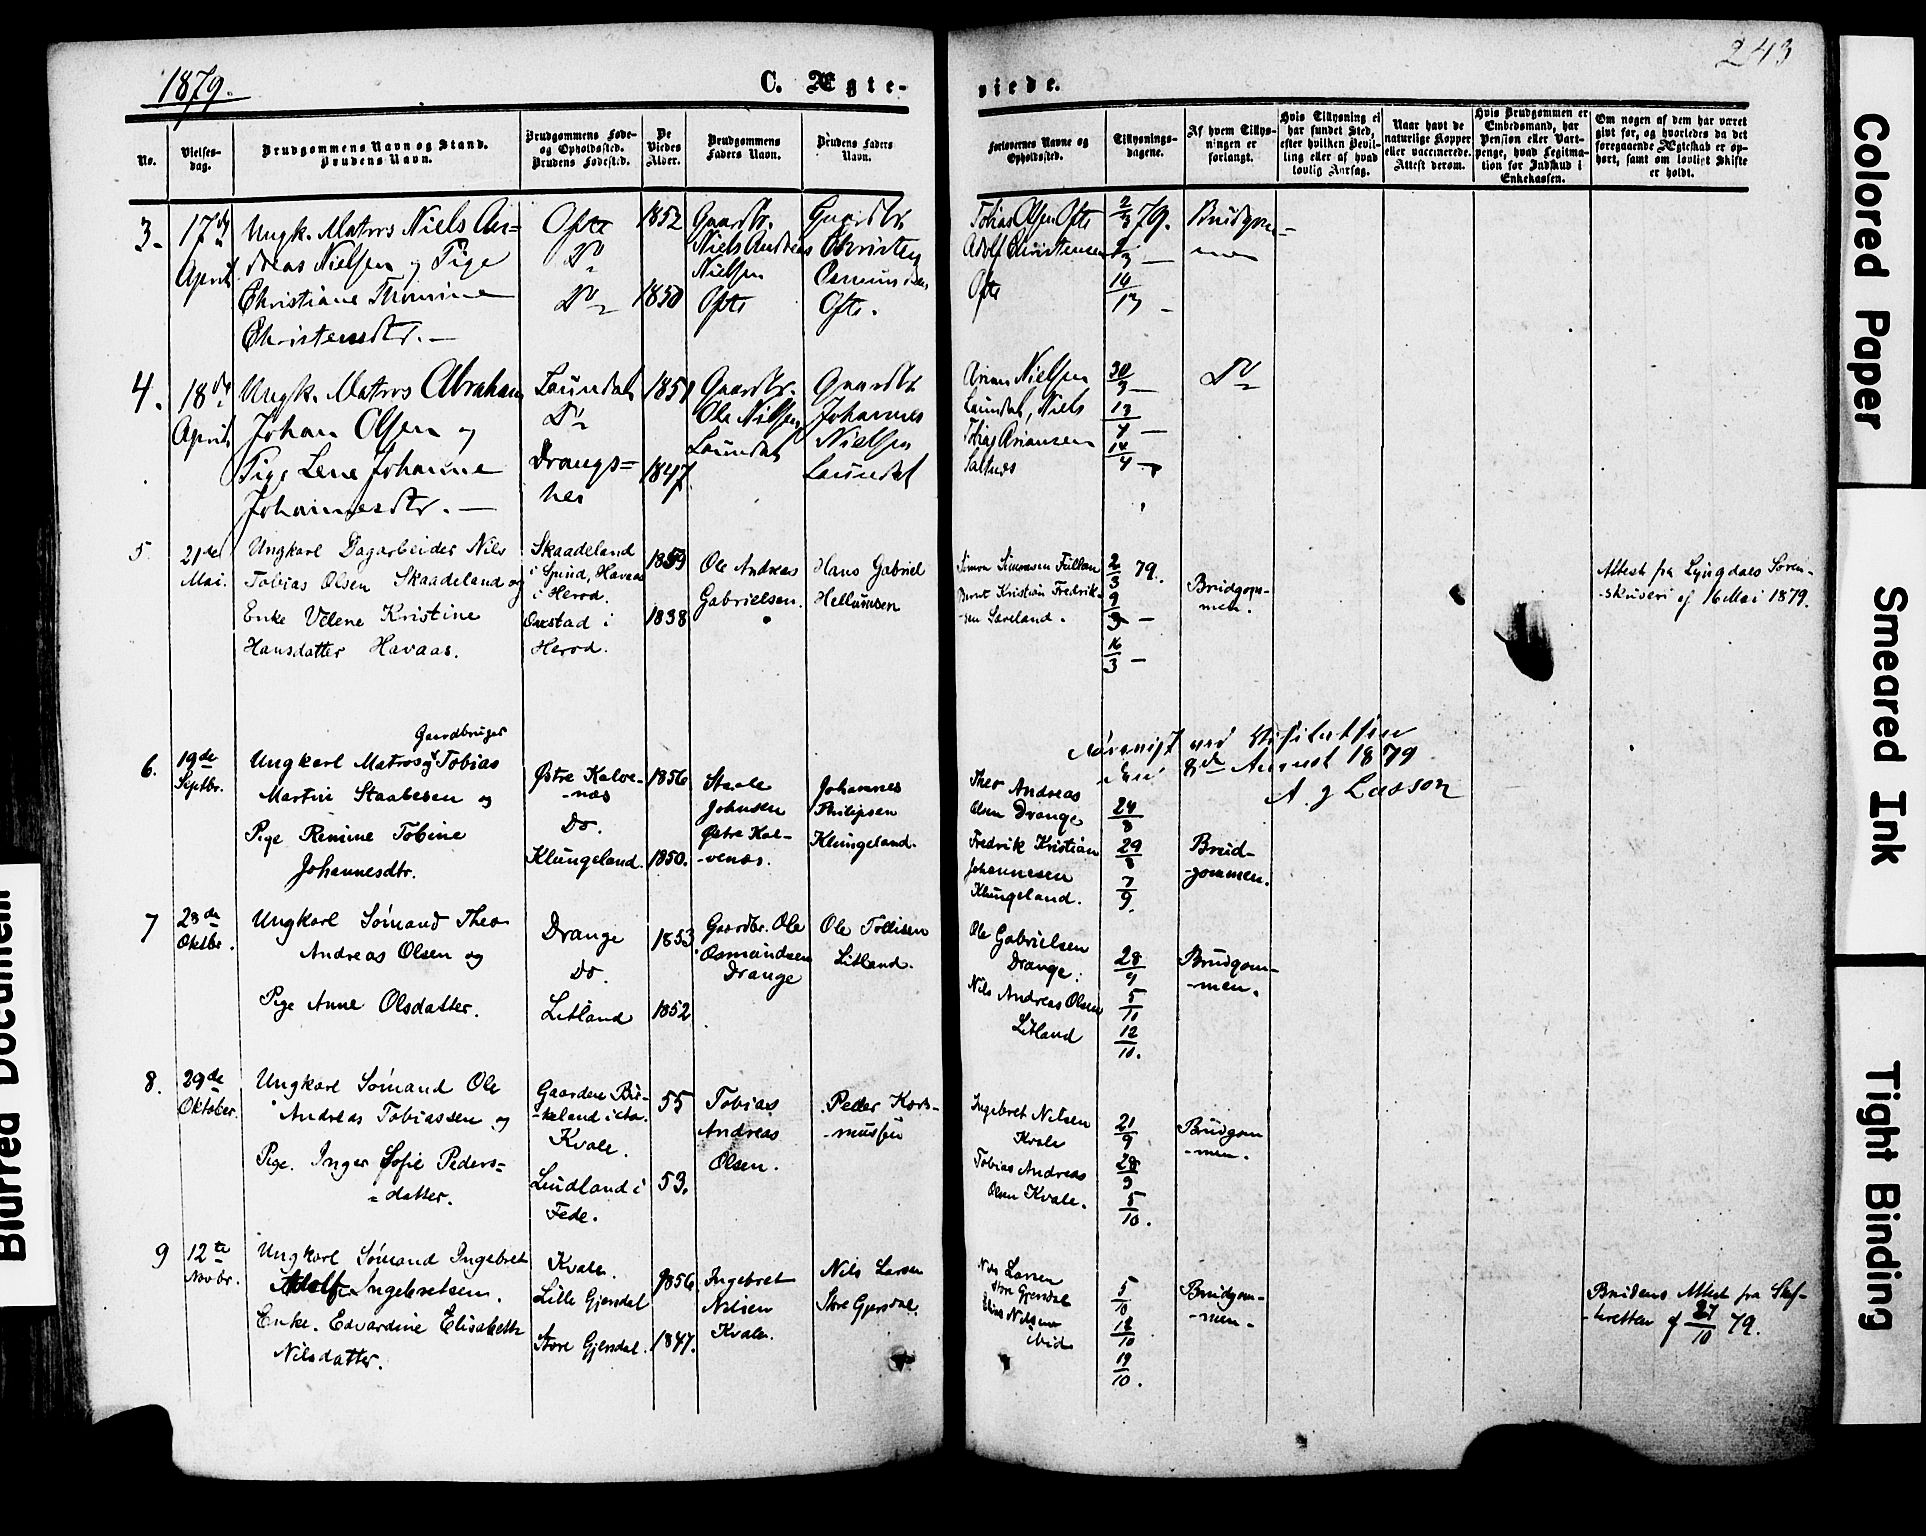 1879.
C. Ægte-
viede.
243
No.
Vielses-
dag.
Brudgommens Navn og Stand.
Brudens Navn.
Brudgommens Føde-
og Opholdssted.
Brudens Fødested.
De
Viedes
Alder.
Brudgommens
Faders Navn.
Brudens Faders
Navn.
Forlovernes Navne og
Opholdssted.
Tillysnings-
dagene.
Af hvem Tillys-
ningen er
forlangt.
Hvis Tillysning ei
har fundet Sted,
efter hvilken Bevil-
ling eller af hvad
lovlig Aarsag.
Naar havt de
naturlige Kopper
eller vaccinerede.
Attest derom.
Hvis Brudgommen er
Embedsmand, har
Pension eller Vart-
penge, hvad Legitima-
tion for Indskud i
Enkekassen.
Om nogen af dem har været
gift før, og hvorledes da det
foregaaende Ægteskab er op-
hørt, samt om lovligt Skifte
er holdt.
3.
17de
April
Ungk. Matros Niels An-
dreas Nielsen og Pige
Christiane Thomine
Christensdtr. —
Ofte
Do
Do
1852
1850
Gaardbr.
Niels Andreas
Nielsen
Ofte
Gaardbr.
Christen
Ofte.
Tobias Olsen Ofte
Adolf Christensen
Ofte
2/3 79.
9/3 —
Brudgom-
men
4.
18de
April
Ungk. Matros Abraham
Johan Olsen og
Pige Lene Johanne
Johannesdtr. —
Laundal
Do
Drangs=
hei
1851
1847
Gaardbr.
Ole Nielsen
Laundal
Gaardbr
Johannes
Nielsen
Laundal
Arian Nielsen
Laundal, Niels
Tobias Ariansen
30/3 —
13/4 —
14/4 —
Do
5
21de
Mai.
Ungkarl Dagarbeider Nils
Tobias Olsen Skaadeland og
Enke Velene Kristine
Hansdatter Havaas.
Skaadeland
i Spind, Havaas
i Herod.
Oxstad i
Herod.
1859
1838
Ole Andreas
Gabrielsen.
Hans Gabriel
Hellumsen
Simon Simonsen Fullan
Bernt Kristian Fredrik-
sen Saveland.
2/3 79.
9/3 —
16/3 —
Brudgom-
men.
Attest fra Lyngdals Soren-
skriveri af 16 Mai 1879.
ved Visitatsen
den 8de August 1879
A. J Lasson
6.
19de
Septbr.
Gaardbruger
Ungkarl Matros og Tobias
Martin Staalesen og
Pige Remine Tobine
Johannesdtr.
Østre Kalve-
-næs
Do.
Klungeland.
1856
1850.
Staale
Johnsen
Østre Kal-
-venæs.
Johannes
Philipsen
Klungeland.
Theo Andreas
Olsen Drange
Fredrik Kristian
Johannesen
Klungeland.
24/8
29/8
7/9.
Brud-
-gommen.
7
28de
Oktbr.
Ungkarl Sømand Theo
Andreas Olsen og
Pige Anne Olsdatter.
Drange
Do.
Litland
1853
1852
Gaardbr. Ole
Osmundsen
Drange
Ole Tollisen
Litland.
Ole Gabrielsen
Drange.
Nils Andreas Olsen
Litland
28/9
5/10
12/10.
Brudgom-
-men.
8.
29de
Oktober.
Ungkarl Sømand Ole
Andreas Tobiassen og
Pige. Inger Sofie Peders=
=datter.
Gaarden Bir-
-keland i
Kvale.
Lindland i
Fede.
55
53.
Tobias
Andreas
Olsen.
Peder Kors-
-mussen
Ingebret Nilsen
Kvale
Tobias Andreas
Olsen Kvale.
21/9
28/9
5/10.
Brudgom
-men.
9
12te
Novbr.
Ungkarl Sømand Ingebret
Adolf Ingebretsen.
Enke. Edvardine Elisabeth
Nilsdatter.
Kvale.
Lille Gjersdal
Store Gjersdal.
1856
1847.
Ingebret
Nilsen
Kvale.
Nils Larsen
Store Gjersdal.
Nils Larsen
Store Gjersdal
Elias Nilsen
ibid
5/10
12/10
19/10.
Brudgom-
-men.
Brudens Attest fra Skif-
-teretten af 27/10 79.
Colored Paper
Smeared Ink
Tight Binding
Blurred Document